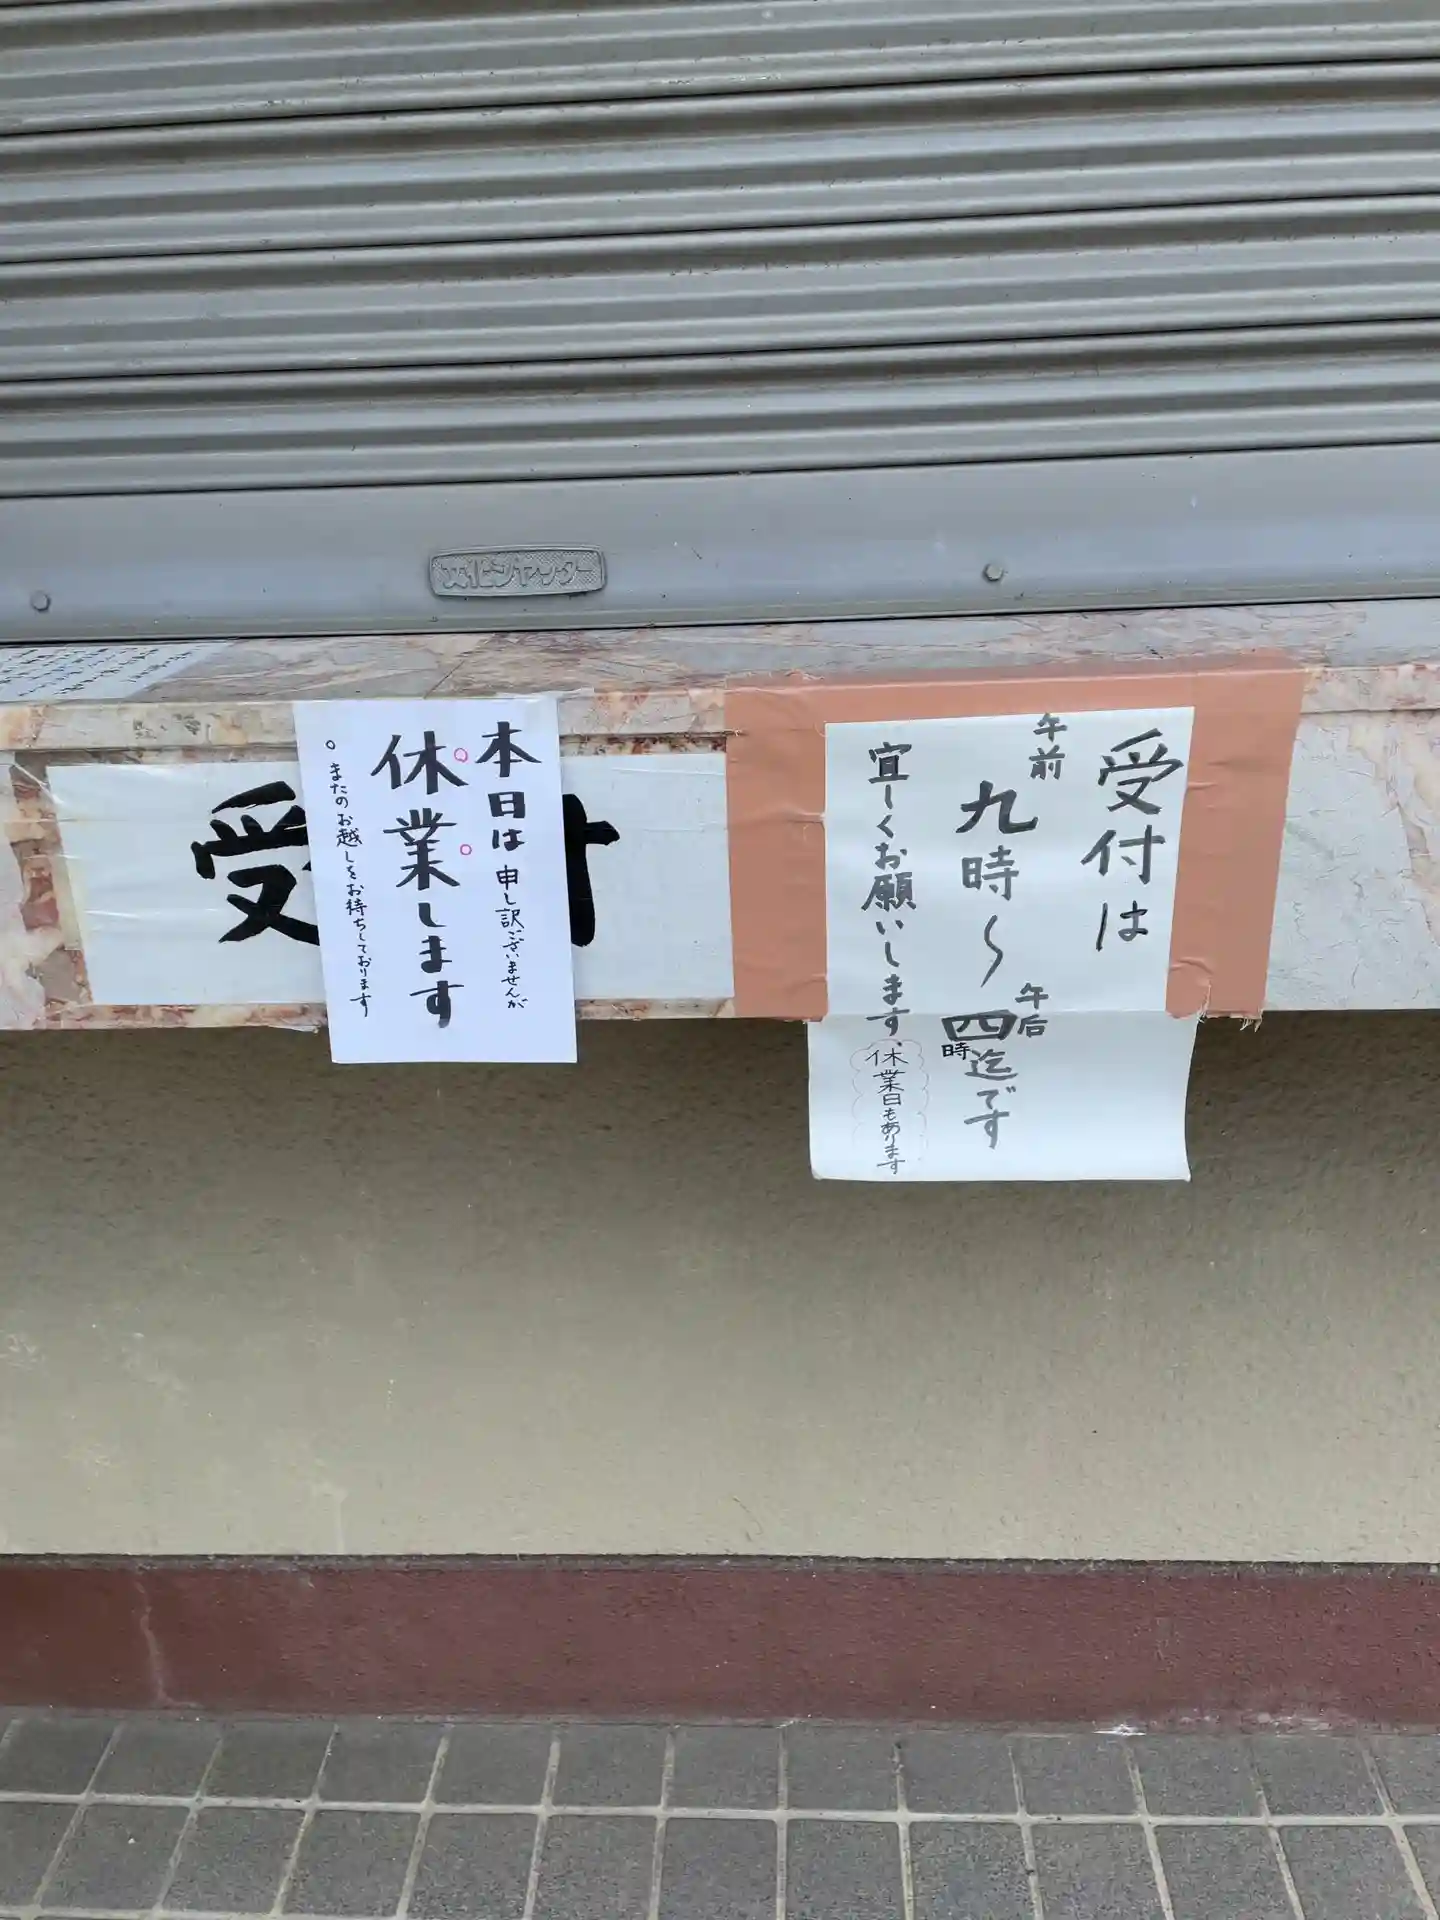 文化シャッター
受付
本日は申し訳ございませんが
休業します
。またのお越しをお待ちしております
受付は
午前九時〜午后四時迄です
宜しくお願いします、休業日もあります